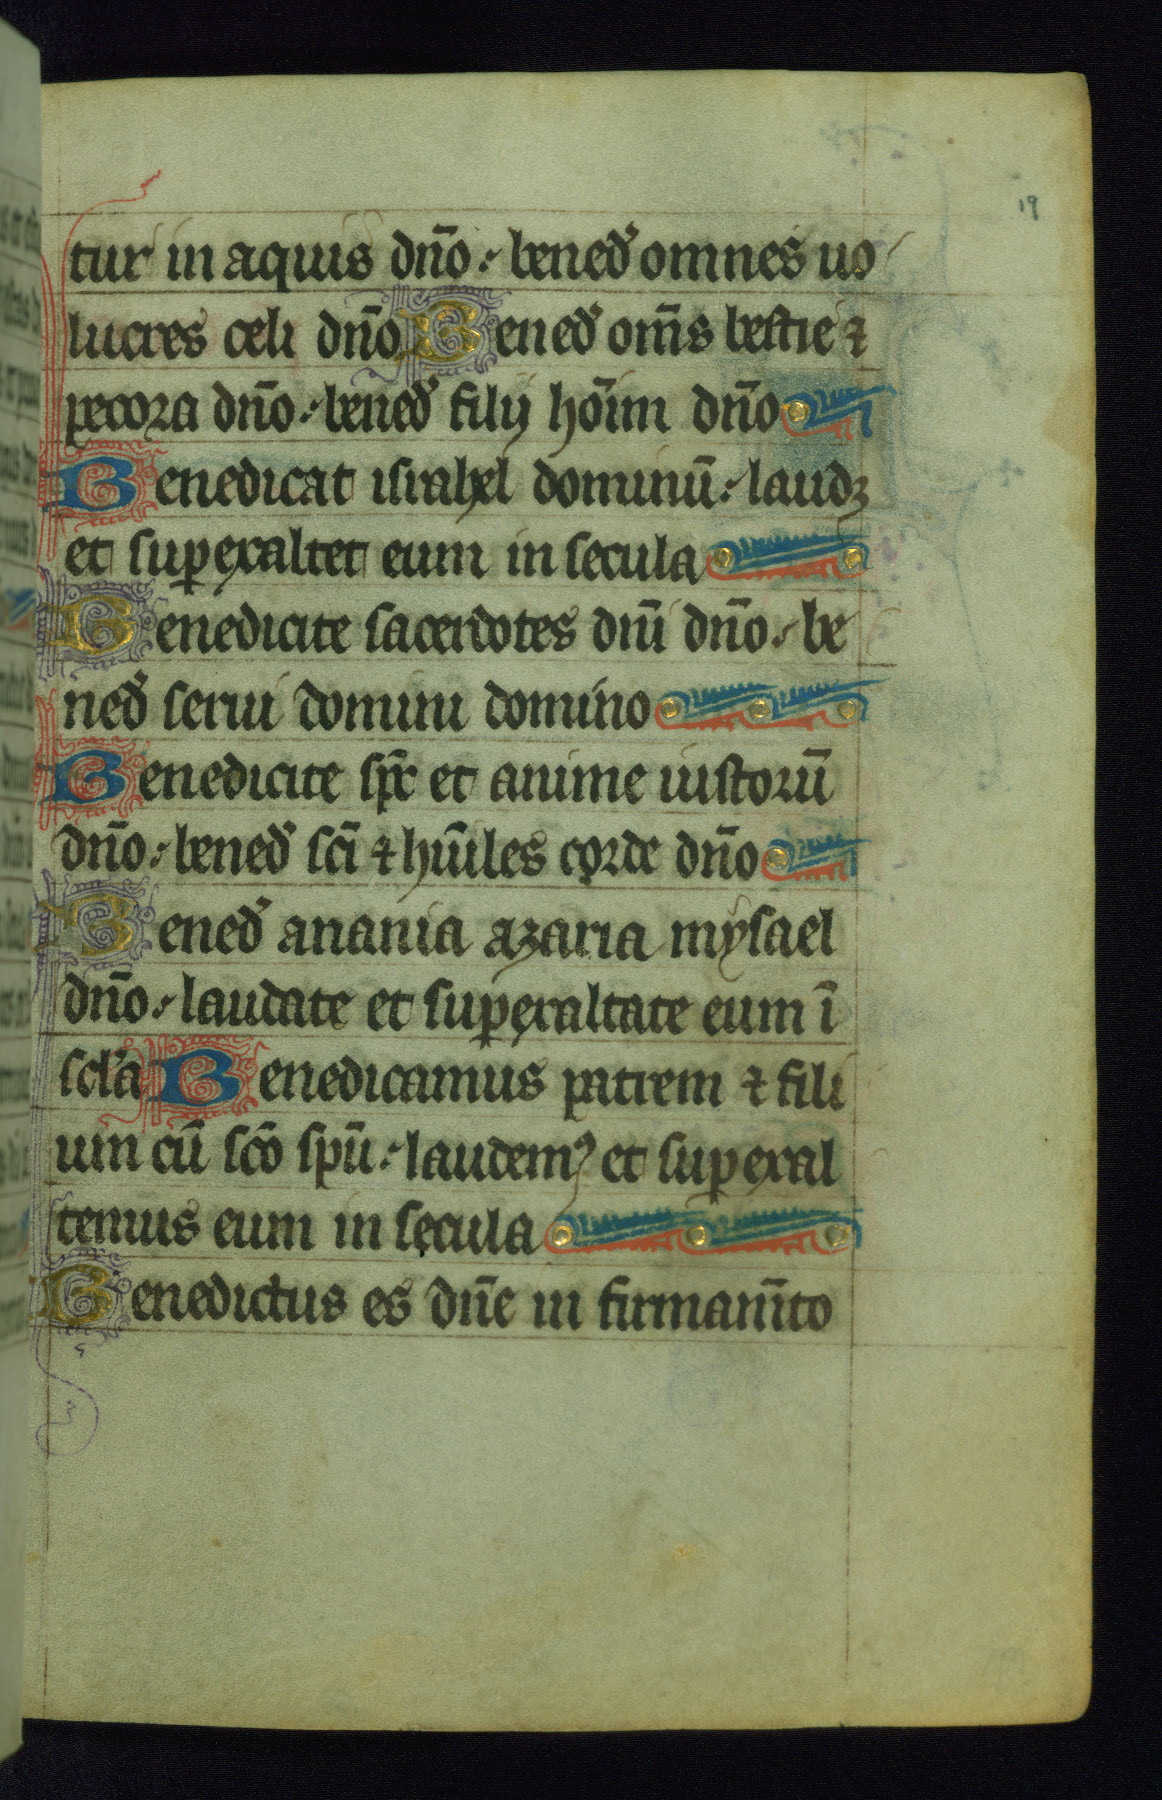 19
tur in aquis dn̄o : bened̄ omnes uo
lucres celi dn̄o Bened̄ om̄s bestie ⁊
pecora dn̄o : bened̄ filij hōim dn̄o
Benedicat israhel dominū : laudꝫ
et suꝑexaltet eum in secula
Benedicite sacerdotes dn̄i dn̄o : be
ned̄ serui domini domino
Benedicite sp̄c et anime iustorū
dn̄o : bened̄ sc̄i ⁊ hūiles corde dn̄o
Bened̄ anania azaria mysael
dn̄o : laudate et suꝑexaltate eum ī
scl̓a Benedicamus patrem ⁊ fili
um cū sc̄o sp̄u : laudemꝰ et suꝑexal
temus eum in secula
Benedictus es dn̄e in firmam̄to